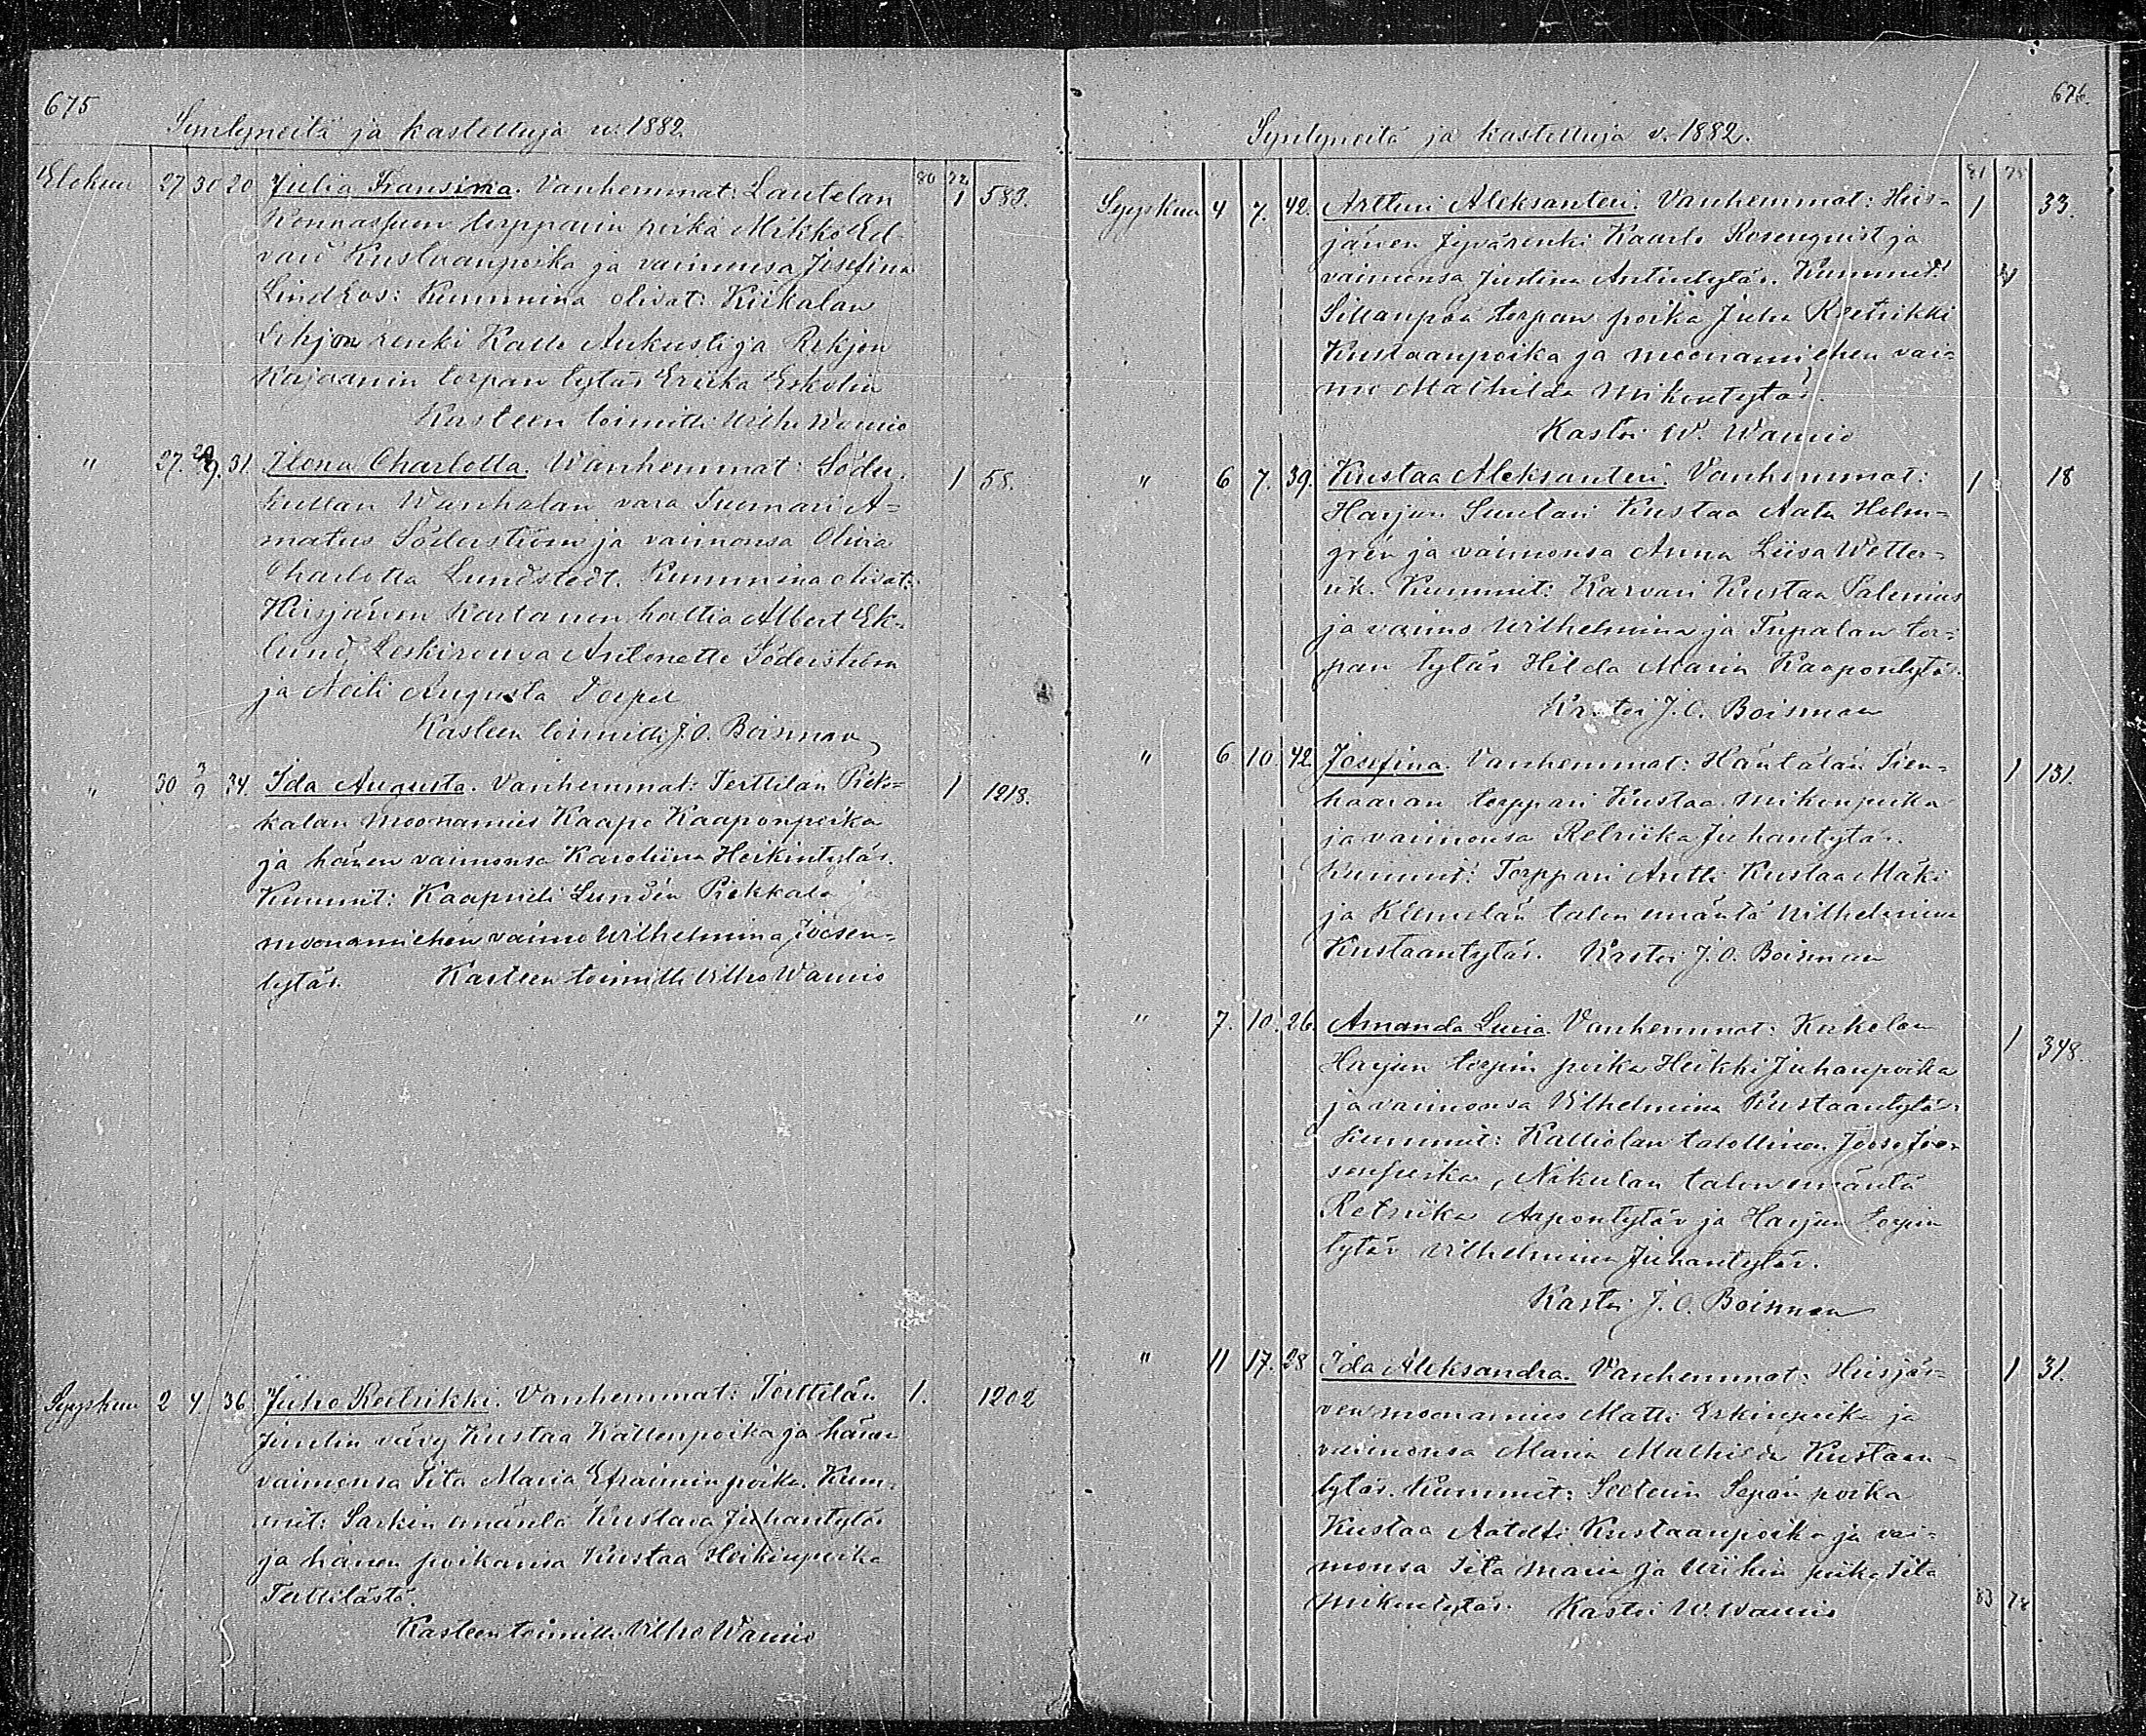 675
Syntyneitä ja kastettuja v. 1882
Elokuu 27 30 20 Julia Fransina. Vanhemmat: Lautelan 80 72 1 583.
torpparin poika Mikko Ed-
vard Kustaanpoika ja vaimonsa Josefina
Kummina olivat: Kiikalan
renki Kalle Aukusti ja Rekjon
Kajaanin torpan tytär Eriika Eskolin
Kasteen toimitti Vilho Wamio
" 27. 31. Ilona Charlotta. Wanhemmat: Söder- 1 58.
kullan Wanhalan vara Tuomari A-
matus Söderström ja vaimonsa Olivia
Charlotta Lundstedt. Kummina olivat:
Hiisjärven Kartanon haltia Albert Ek-
lund, Leskirouva Antonette Söderström
ja Neiti Augusta
Kasteen toimitti J. O. Boisman
" 30 3/9 34. Ida Augusta. Vanhemmat: Terttilän Piek- 1 1218.
kalan moonamies Kaapo Kaaponpoika
ja hänen vaimonsa Karoliina Heikintytär.
Kummit: Kaaprieli Lundén Piekkala ja
moonamiehen vaimo Wilhelmina Joosen-
tytär. Kasteen toimitti Vilho Wamio
Syyskuu 2 4 36. Juho Reetrikki. Vanhemmat: Terttilän 1. 1202
Juntin vävy Kustaa Kallenpoika ja hänen
vaimonsa Iita Maria Efraiminpoika. Kum-
mit: Sarkin emäntä Kustava Juhantytär
ja hänen poikansa Kustaa Heikinpoika
Terttilästä.
Kasteen toimitti Vilho Wamio
676.
Syntyneitä ja kastettuja v. 1882.
Syyskuu 4 7. 42. Artturi Aleksanteri. Vanhemmat: Hiis- 81 78 1 33.
järven Jyvärenki Kaarlo Rosenquist ja
vaimonsa Justina Antintytär. Kummit:
Sillanpää torpan poika Juho Reetrikki
Kustaanpoika ja moonamiehen vai-
mo Mathilda Mikontytär.
Kastoi W. Wamio
" 6 7. 39. Kustaa Aleksanteri. Vanhemmat: 1 18
Harjun Suutari Kustaa Aatu Holm-
grén ja vaimonsa Anna Liisa Wetter-
vik. Kummit: Karvari Kustaa Palenius
ja vaimo Wilhelmina ja Tupalan tor-
pan tytär Hilda Maria Kaapontytär
Kastoi J. O. Boisman
" 6. 10. 42. Josefina. Vanhemmat: Häntälän Tien- 1 131.
haaran torppari Kustaa Mikonpoika
ja vaimonsa Retriika Juhantytär.
Kummit: Torppari Antti Kustaa Mäki
ja Klemelän talon emäntä Wilhelmina
Kustaantytär. Kastoi J. O. Boisman
" 7. 10. 26. Amanda Lusia. Vanhemmat: Kerkolan 1 348.
Harjun torpin poika Heikki Juhanpoika
ja vaimonsa Vilhelmina Kustaantytär
Kummit: Kalliolan talollinen Joose Joo-
senpoika, Nikulan talon emäntä
Retriika Aapontytär ja Harjun torpin
tytär Vilhelmina Juhantytär.
Kastoi J. O. Boisman
" 11 17. 28 Ida Aleksandra. Vanhemmat: Hiisjär- 1 31.
ven moonamies Matti Erkinpoika ja
vaimonsa Maria Mathilda Kustaan-
tytär. Kummit: Sepän poika
Kustaa Aatolfi Kustaanpoika ja vai-
monsa Iita Maria ja piika Iita
Mikontytär. Kastoi W. Wamio 83 78